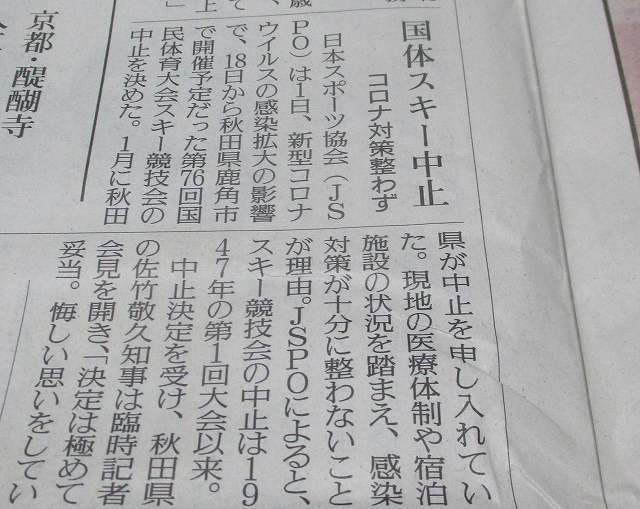 国体スキー中止
コロナ対策整わず
日本スポーツ協会（ＪＳ
ＰＯ）は１日、新型コロナ
ウイルスの感染拡大の影響
で、18日から秋田県鹿角市
で開催予定だった第76回国
民体育大会スキー競技会の
中止を決めた。１月に秋田
県が中止を申し入れてい
た。現地の医療体制や宿泊
施設の状況を踏まえ、感染
対策が十分に整わないこと
が理由。ＪＳＰＯによると、
スキー競技会の中止は１９
４７年の第１回大会以来。
中止決定を受け、秋田県
の佐竹敬久知事は臨時記者
会見を開き、「決定は極めて
妥当。悔しい思いをしてい
京都・醍醐寺